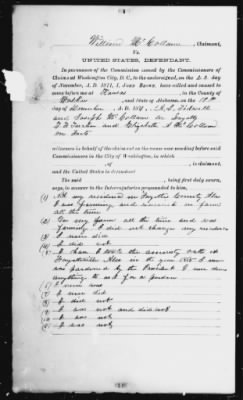 William McCollum, Claimant,
Vs.
UNITED STATES, DEFENDANT.
In pursuance of the Commission issued by the Commissioners of
Claims at Washington City, D. C., to the undersigned, on the
November, A. D. 1871, I, John Brown, have called and caused to
come before me at in the County of
Walker, and State of Alabama, on the 18th
day of December, A. D. 187
and Joseph McCollum in Fayette
and Elizabeth McCollum
witnesses in behalf of the claimant on the cause now pending before said
Commissioners in the City of Washington, in which
, is claimant,
and the United States is defendant.
The said , being first duly sworn,
says, in answer to the Interrogatories propounded to him,
(1) My residence in Fayette County Ala
I was farming and on farm
all the time
(2) On my farm all the time and was
farming I did not change my residence
(3) I never did
(4) I did not
(5) I have I took the amnesty oath at
Fayetteville Ala in the year 1865 I never
was pardoned by the President I never done
anything to ask for a pardon
(6) I never was
(7) I never did
I did not
I was not and did not
(10) I was not
I was not